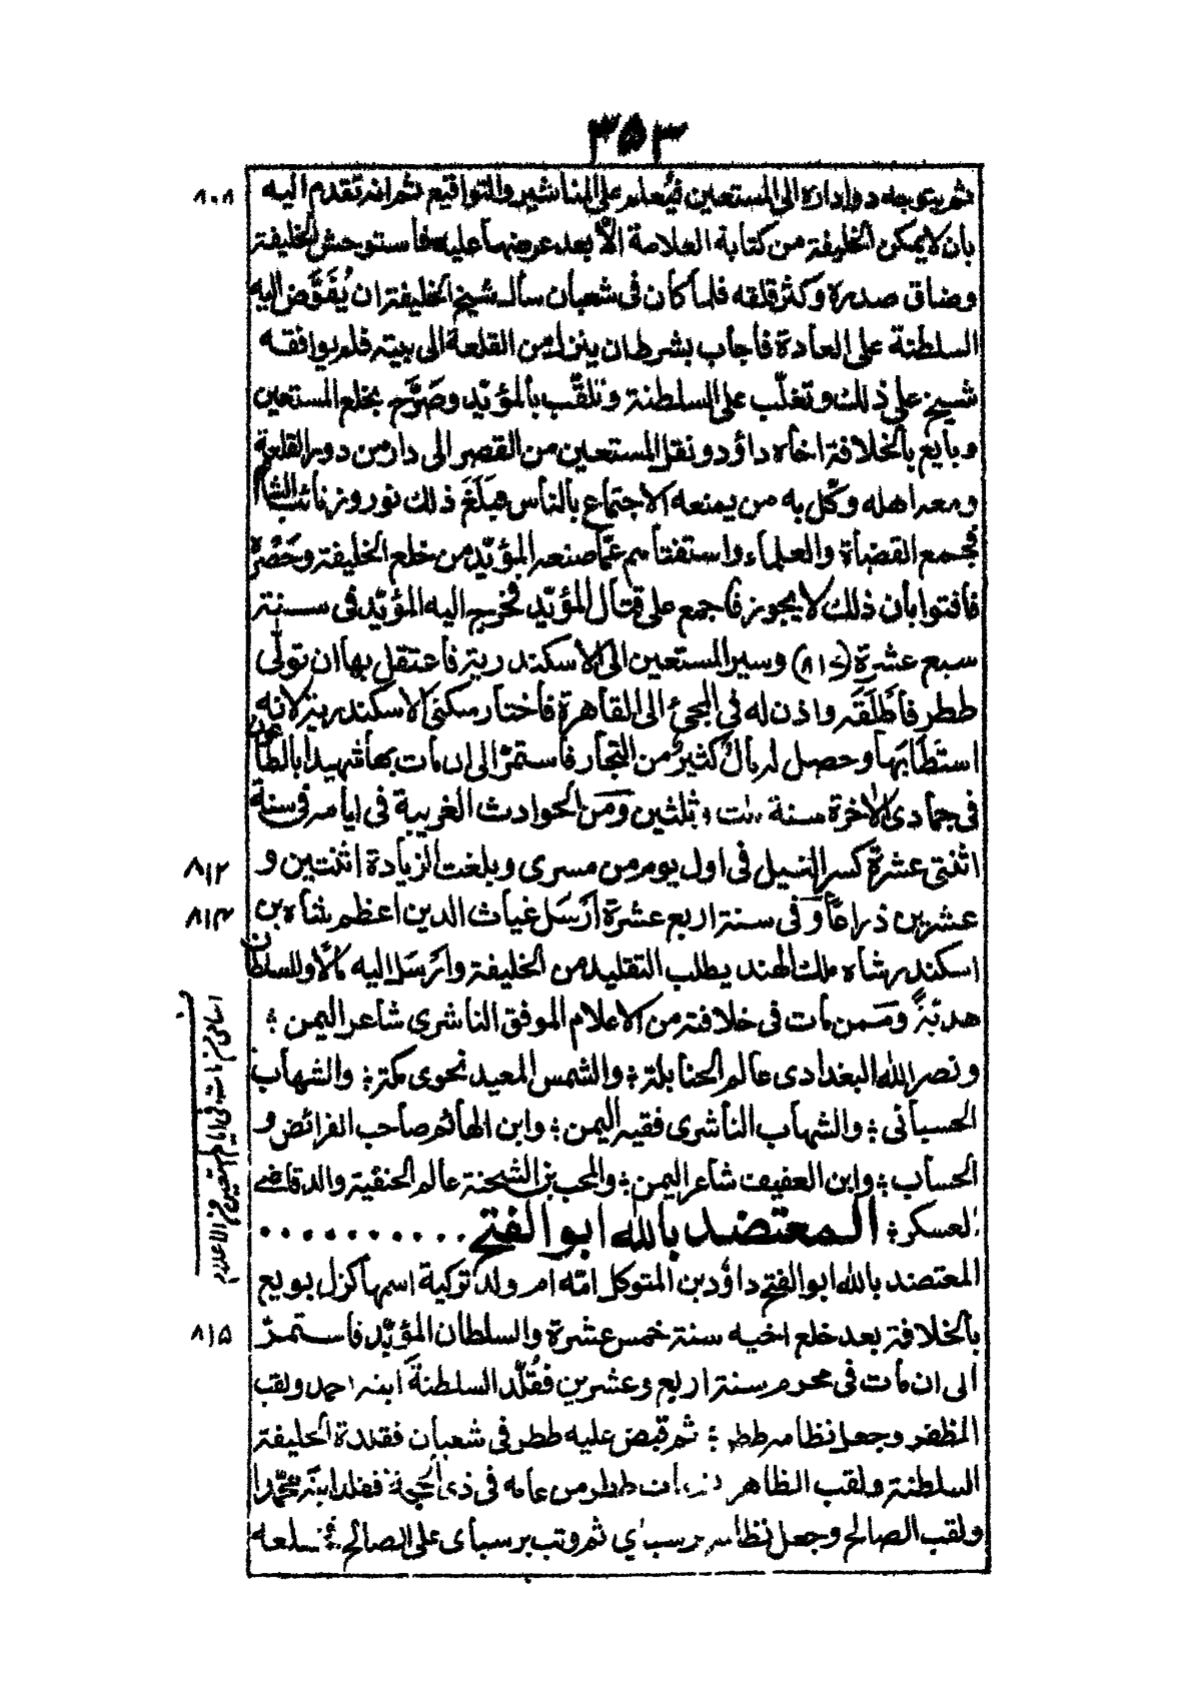 ٣٥٣
ثم يتوجه دواداره الى المستعين فيُعلم على المناشير والتواقيع ثم انه تقدم اليه
٨٠٨
بان لا يمكن الخليفة من كتابة العلامة الّا بعد عرضها عليه فاستوحش الخليفة
وضاق صدره وكثر قلقه فلما كان فى شعبان سأل شيخ الخليفة ان يُفَوَّض اليه
السلطنة على العادة فاجاب بشرط ان ينزل من القلعة الى بيته فلم يوافقه
شيخ على ذلك وتغلّب على السلطنة وتلقّب بالمؤيّد وصَرَّح بخلع المستعين
وبايع بالخلافة اخاه داؤد ونقل المستعين من القصر الى دار من دور القلعة
ومعه اهله ووكّل به من يمنعه الاجتماع بالناس فبلَغَ ذلك نوروز نائب الشام
فجمع القضاة والعلماء واستفتاهم عمّا صنعه المؤيّد من خلع الخليفة وحَصْره
فافتوا بأن ذلك لا يجوز فاجمع على قتال المؤيّد فخرج اليه المؤيّد فى سنة
سبع عشرة (٨١٧) وسير المستعين الى الاسكندرية فاعتقل بها ان تولّى
ططر فاَطلَقَه واذن له في المجئ الى القاهرة فاختار سكنى الاسكندرية لانه
استَطَابَها وحصل له مالٌ كثيرٌ من التجار فاستمرّ الى ان مات بها شهيدا بالطاعون
فى جمادى الاٰخرة سنة ثلثين ومن الحوادث الغريبة فى ايامه فى سنة
اثنتى عشرة كسر النيل فى اول يوم من مسرى وبلغت الزيادة اثنتين و
٨١٢
عشرين ذراعًا وفى سنة اربع عشرة ارسَل غياث الدين اعظم شاه بن
٨١٤
اسكندر شاه ملك الهند يطلب التقليد من الخليفة وارسَل اليه مالا وللسلطان
هديّةً وممن مات فى خلافته من الاعلام الموفق الناشرى شاعر اليمن ؛
ونصر الله البغدادى عالم الحنابلة ؛ والشمس المعيد نحوى مكة ؛ والشهاب
الحسبانى ؛ والشهاب الناشرى فقيه اليمن ؛ وابن الهائم صاحب الفرائض و
الحساب ؛ وابن العفيف شاعر اليمن ؛ والمحب بن الشحنة عالم الحنفية والد قاضى
اسامى من مات فى ايام المستعين من الاعلام
العسكر ؛ المعتضد بالله ابو الفتح ..........
المعتضد بالله ابو الفتح داؤد بن المتوكل امّه ام ولد تركية اسمها كزل بويع
بالخلافة بعد خلع اخيه سنة خمس عشرة والسلطان المؤيّد فاستمرّ
٨١٥
الى ان مات فى محرم سنة اربع وعشرين فقُلّد السلطنةَ ابنه احمد ولقب
المظفر وجعل نظامه ططر ؛ ثم قبض عليه ططر فى شعبان فقلده الخليفة
السلطنة ولقب الظاهر مات ططر من عامه فى ذى الحجة فقلد ابنَه محمّدا
ولقب الصالح وجعل نظامه برسباي ثم وثب برسباى على الصالح فخلعه